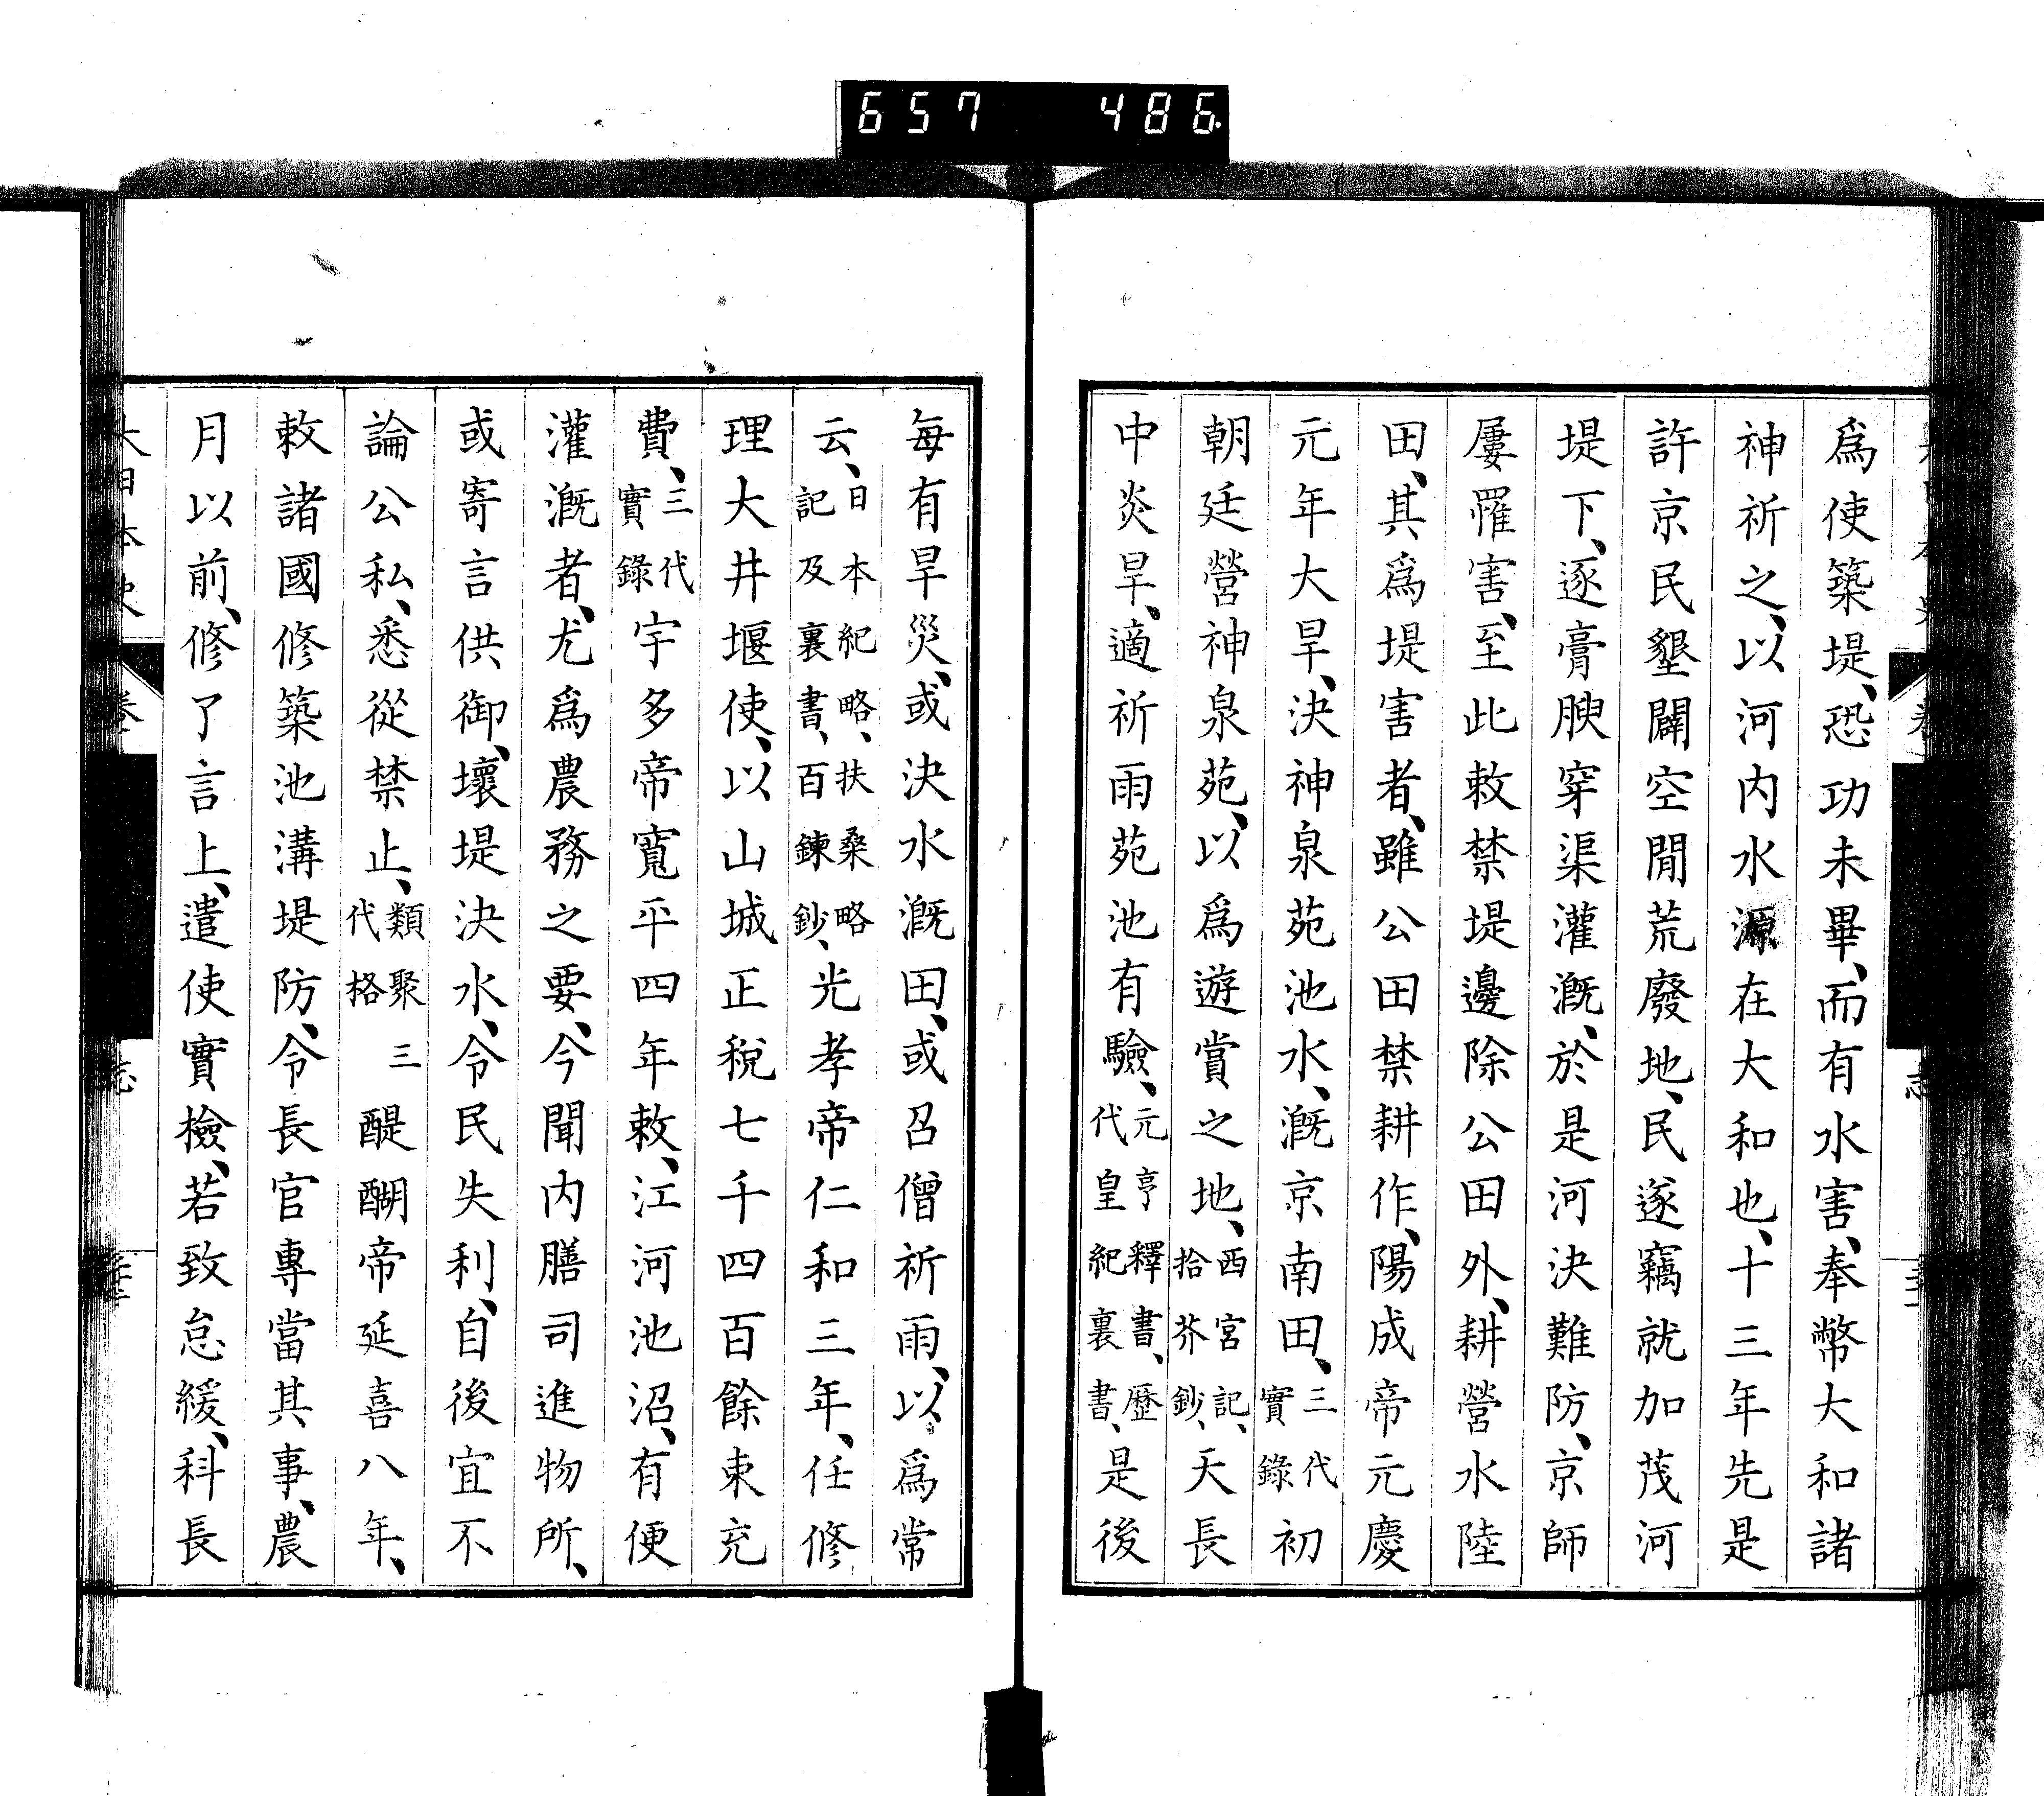 657 486
爲使築堤、恐功未畢、而有水害、奉幣大和諸
神祈之、以河内水源在大和也、十三年先是
許京民墾闢空閒荒廢地、民遂竊就加茂河
堤下、逐膏腴穿渠灌漑、於是河決難防、京師
屢罹害、至此敕禁堤邊除公田外、耕營水陸
田、其爲堤害者、雖公田禁耕作、陽成帝元慶
元年大旱、決神泉苑池水、漑京南田、三代實錄初
朝廷營神泉苑、以爲遊賞之地、西宮記、拾芥鈔、天長
中炎旱、適祈雨苑池有驗、元亨釋書、歷代皇紀裏書、是後
每有旱災、或決水漑田、或召僧祈雨、以爲常
云、日本紀略、扶桑略記及裏書、百鍊鈔、光孝帝仁和三年、任修
理大井堰使、以山城正稅七千四百餘束充
費、三代實錄宇多帝寬平四年敕、江河池沼、有便
灌漑者、尤爲農務之要、今聞内膳司進物所、
或寄言供御、壞堤決水、令民失利、自後宜不
論公私、悉從禁止、類聚三代格醍醐帝延喜八年、
敕諸國修築池溝堤防、令長官專當其事、農
月以前、修了言上、遣使實檢、若致怠緩、科長
大日本史
卷
志